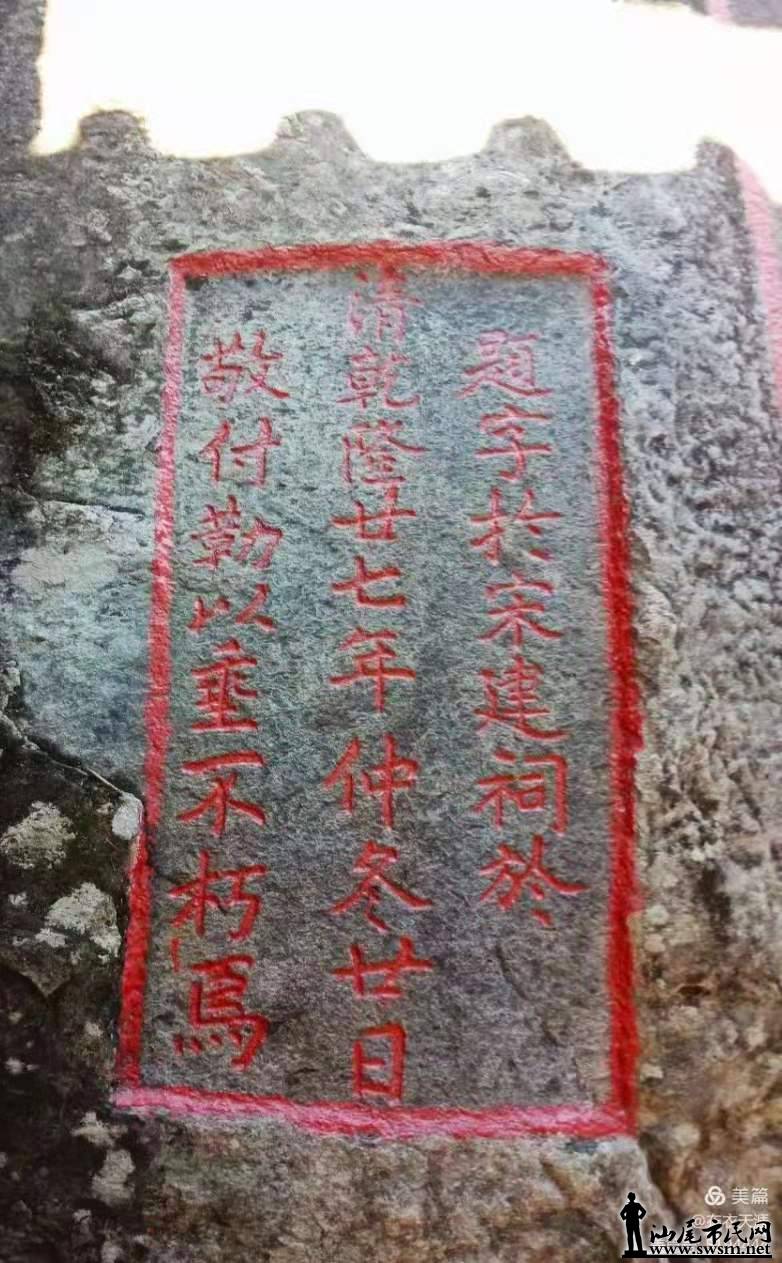 题字於宋建祠於
清乾隆廿七年仲冬廿日
敬付勒以垂不朽焉
美篇
汕尾市民网
www.swsm.net